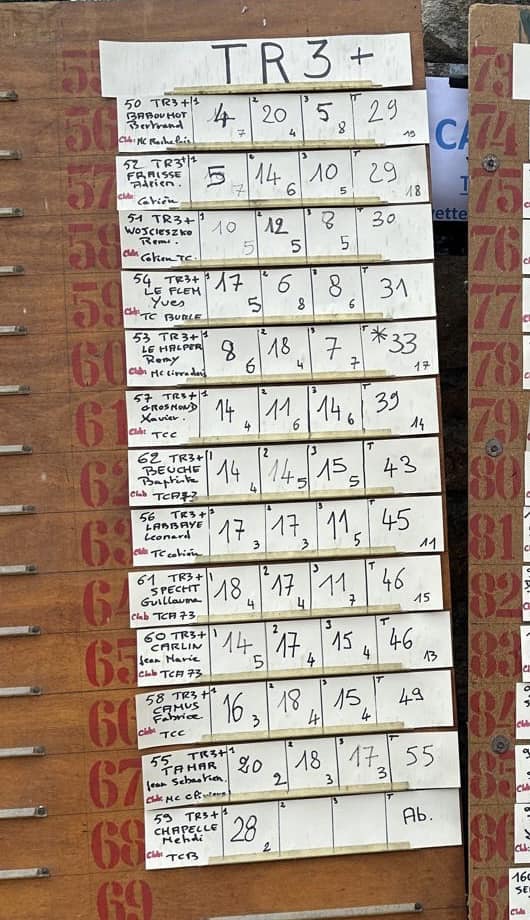 TR3+
50 TR3+ 1 4 7 2 20 4 3 5 8 T 29 19
BABOUHOT
Bertrand
Club: MC Rochelois
52 TR3+ 1 5 7 14 6 10 5 29 18
FRAISSE
Adrien.
Club:
51 TR3+ 1 10 5 2 12 5 3 8 5 T 30
WOJCIESZKO
Remi.
Club:
54 TR3+ 1 17 5 2 6 8 3 8 6 T 31
LE FLEM
Yves
Club: TC BURLE
53 TR3+ 8 6 2 18 4 3 7 7 T *33 17
LE HALPER
Romy
Club:
57 TR3+ 1 14 4 2 11 6 3 14 6 T 39 14
GROSMOND
Xavier.
Club: TCC
62 TR3+ 1 14 4 2 14 5 3 15 5 T 43
BEUCHE
Baptiste
Club TCA73
56 TR3+ 1 17 3 2 17 3 3 11 5 T 45 11
LABBAYE
Leonard
Club:
61 TR3+ 1 18 4 2 17 4 3 11 7 T 46 15
SPECHT
Guillaume
Club TCA73
60 TR3+ 1 14 5 2 17 4 3 15 4 T 46 13
CARLIN
Jean Marie
Club TCA73
58 TR3+ 1 16 3 2 18 4 3 15 4 T 49
CAMUS
Fabrice
Club: TCC
55 TR3+ 1 20 2 2 18 3 3 17 3 T 55
TAMAR
Jean Sebastien.
Club: MC
59 TR3+ 1 28 2 2 3 T Ab.
CHAPELLE
Mehdi
Club: TCB
55
56
57
58
59
60
61
62
63
64
65
66
67
68
69
CA
T
ette
73
74
75
76
77
78
79
80
81
82
83
84
85
86
87
160
SE